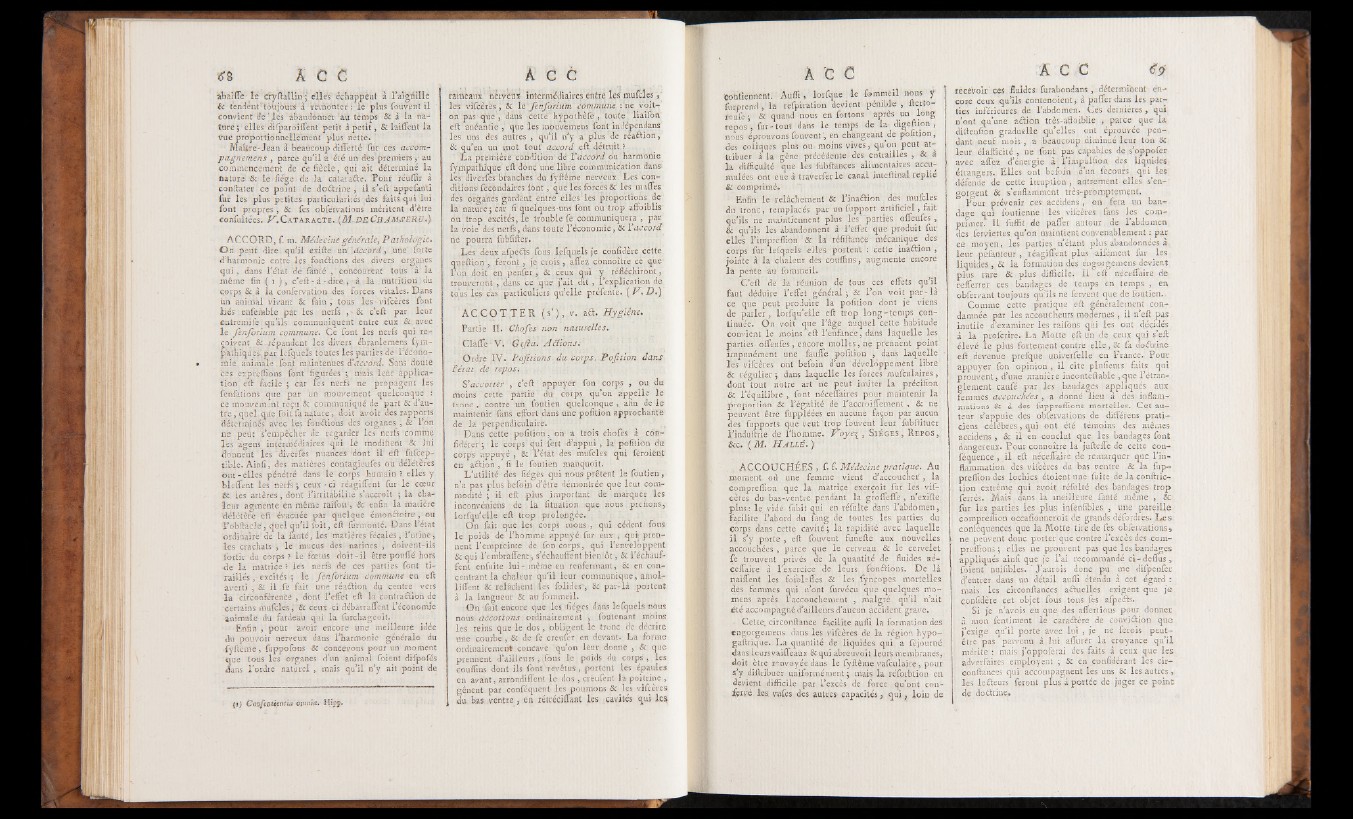 68 A C C
abaisse le crystallin ; elles échappent à l'aiguille
& tendent toujours à remonter : le plus souvent il
convient de les abandonner au temps & à la na-
ture ; elles disparoissent petit à petit, & laissent la
vue proportionnellement plus nette.
Maître-Jean a beaucoup disserté sur ces accom-
pagnemens , parce qu'il a été un des premiers, au
commencement de ce siècle, qui ait déterminé la
nature & le siège de la cataracte. Pour réussir à
constater ce point de doctrine, il s'est appesanti
sur les plus petites particularités des faits qui lui
sont propres, & ses observations méritent d'être
consultées. V. CATARACTE. (M. DE CHAMSERU.)
ACCORD, f. m. Médecine générale, Pathologie.
On peut dire qu'il existe un accord, une sorte
d'harmonie entre les fonctions des divers organes
qui, dans l'état de santé, concourent tous à la
même fin (1), c'est-à-dire, à la nutrition du
corps & à la conservation des forces vitales. Dans
un animal vivant & sain, tous les viscères sont
liés ensemble par les nerfs, & c'est par leur
entremise qu'ils communiquent entre eux & avec
le sensorium commune. Ce sont les nerfs qui re-
çoivent & répandent les divers ébranlemens sym-
pathiques par lesquels toutes les parties de l'écono-
mie animale sont maintenues d'accord. Sans doute
ces expressions sont figurées ; mais leur applica-
tion est facile ; car les nerfs ne propagent les
sensations que par un mouvement quelconque :
ce mouvement reçu & communiqué de part & d'au-
tre, quel que soit sa nature, doit avoir des rapports
déterminés avec les fonctions des organes, & l'on
ne peut s'empêcher de regarder les nerfs comme
les agens intermédiaires qui le modifient & lui
donnent les diverses nuances dont il est suscep-
tible. Ainsi, des matières contagieuses ou délétères
ont-elles pénétré dans le corps humain ? elles y
blessent les nerfs ; ceux-ci réagissent sur le cœur
& les artères, dont l'irritabilité s'accroît ; la cha-
leur augmente en même raison, & enfin la matière
délétère est évacuée par quelque émonctoire, ou
l'obstacle, quel qu'il soit, est surmonté. Dans l'état
ordinaire de la santé, les matières fécales, l'urine,
les crachats, le mucus des narines, doivent-ils
sortir du corps ? le fœtus doit-il être poussé hors
de la matrice ? les nerfs de ces parties sont ti-
raillés, excités ; le sensorium commune en est
averti, & il se fait une réaction du centre vers
la circonférence, dont l'effet est la contraction de
certains muscles, & ceux-ci débarrassent l'économie
animale du fardeau qui la surchargeoit.
Enfin, pour avoir encore une meilleure idée
du pouvoir nerveux dans l'harmonie générale du
système, supposons & concevons pour un moment
que tous les organes d'un animal soient disposés
dans l'ordre naturel, mais qu'il n'y ait point de
(1) Consentientia omnia. Hipp.
A C C
rameaux nerveux intermédiaires entre les muscles,
les viscères, & le sensorium commune : ne voit-
on pas que, dans cette hypothèse, toute liaison
est anéantie, que les mouvemens sont indépendans
les uns des autres, qu'il n'y a plus de réaction,
& qu'en un mot tout accord est détruit ?
La première condition de l'accord ou harmonie
sympathique est donc une libre communication dans
les diverses branches du système nerveux. Les con-
ditions secondaires sont, que les forces & les masses
des organes gardent entre elles les proportions de
la nature ; car si quelques-uns sont ou trop affoiblis
ou trop excités, le trouble se communiquera, par
la voie des nerfs, dans toute l'économie, & l'accord
ne pourra subsister.
Les deux aspects sous lesquels je considère cette
question, feront, je crois, assez connoître ce que
l'on doit en penser, & ceux qui y réfléchiront,
trouveront, dans ce que j'ait dit, l'explication de
tous les cas particuliers qu'elle présente. (V. D.)
ACCOTTER (s'), v. act. Hygiène.
Partie II. Choses non naturelles.
Classe V. Gesta. Actions.
Ordre IV. Positions du corps. Position dans
l'état de repos.
S'accotter, c'est appuyer son corps, ou du
moins cette partie du corps qu'on appelle le
tronc, contre un soutien quelconque, afin de le
maintenir sans effort dans une position approchante
de la perpendiculaire.
Dans cette position, on a trois choses à con-
sidérer ; le corps qui sert d'appui, la position du
corps appuyé, & l'état des muscles qui seroient
en action, si le soutien manquoit.
L'utilité des sièges qui nous prêtent le soutien,
n'a pas plus besoin d'être démontrée que leur com-
modité ; il est plus important de marquer les
inconvéniens de la situation que nous prenons,
lorsqu'elle est trop prolongée.
On sait que les corps mous, qui cèdent sous
le poids de l'homme appuyé sur eux, qui pren-
nent l'empreinte de son corps, qui l'enveloppent
& qui l'embrassent, s'échauffent bientôt, & l'échauf-
fent ensuite lui-même en renfermant, & en con-
centrant la chaleur qu'il leur communique, amol-
lissent & relâchent les solides, & par-là portent
à la langueur & au sommeil.
On sait encore que les sièges dans lesquels nous
nous accottons ordinairement, soutenant moins
les reins que le dos, obligent le tronc de décrire
une courbe, & de se creuser en devant. La forme
ordinairement concave qu'on leur donne, & que
prennent d'ailleurs, sous le poids du corps, les
coussins dont ils sont revêtus, portent les épaules
en avant, arrondissent le dos, creusent la poitrine,
gênent par conséquent les poumons & les viscères
du bas ventre, en rétrécissant les cavités qui les
A C C
contiennent. Aussi, lorsque le sommeil nous y
surprend, la respiration devient pénible, sterto-
reuse ; & quand nous en sortons après un long
repos, sur-tout dans le temps de la digestion,
nous éprouvons souvent, en changeant de position,
des coliques plus ou moins vives, qu'on peut at-
tribuer à la gêne précédente des entrailles, & à
la difficulté que les substances alimentaires accu-
mulées ont eue à traverser le canal intestinal replié
& comprimé.
Enfin le relâchement & l'inaction des muscles
du tronc, remplacés par un support artificiel, fait
qu'ils ne maintiennent plus les parties osseuses,
& qu'ils les abandonnent à l'effet que produit sur
elles l'impression & la résistance mécanique des
corps sur lesquels elles portent : cette inaction,
jointe à la chaleur des coussins, augmente encore
la pente au sommeil.
C'est de la réunion de tous ces effets qu'il
faut déduire l'effet général ; & l'on voit par-là
ce que peut produire la position dont je viens
de parler, lorsqu'elle est trop long-temps con-
tinuée. On voit que l'âge auquel cette habitude
convient le moins est l'enfance, dans laquelle les
parties osseuses, encore molles, ne prennent point
impunément une fausse position, dans laquelle
les viscères ont besoin d'un développement libre
& régulier ; dans laquelle les forces musculaires,
dont tout notre art ne peut imiter la précision
& l'équilibre, sont nécessaires pour maintenir la
proportion & l'égalité de l'accroissement, & ne
peuvent être suppléées en aucune façon par aucun
des supports que veut trop souvent leur substituer
l'industrie de l'homme. Voyez, SIÈGES, REPOS,
&c. (M. HALLÉ.)
ACCOUCHÉES, f. f. Médecine pratique. Au
moment où une femme vient d'accoucher, la
compression que la matrice exerçoit sur les vis-
cères du bas-ventre pendant la grossesse, n'existe
plus : le vide subit qui en résulte dans l'abdomen,
facilite l'abord du sang de toutes les parties du
corps dans cette cavité ; la rapidité avec laquelle
il s'y porte, est souvent funeste aux nouvelles
accouchées, parce que le cerveau & le cervelet
se trouvent privés de la quantité de fluides né-
cessaire à l'exercice de leurs fonctions. De là
naissent les foiblesses & les syncopes mortelles
des femmes qui n'ont survécu que quelques mo-
mens après l'accouchement, malgré qu'il n'ait
été accompagné d'ailleurs d'aucun accident grave.
Cette circonstance facilite aussi la formation des
engorgemens dans les viscères de la région hypo-
gastrique. La quantité de liquides qui a séjourné
dans leurs vaisseaux & qui abreuvoit leurs membranes,
doit être renvoyée dans le système vasculaire, pour
s'y distribuer uniformément ; mais la résorbtion en
devient difficile par l'excès de force qu'ont con-
servé les vases des autres capacités, qui, loin de
A C C 69
recevoir ces fluides surabondans, déterminent en-
core ceux qu'ils contenoient, à passer dans les par-
ties inférieures de l'abdomen. Ces dernières, qui
n'ont qu'une action très-affoiblie, parce que la
distension graduelle qu'elles ont éprouvée pen-
dant neuf mois, a beaucoup diminué leur ton &
leur élasticité, ne sont pas capables de s'opposer
avec assez d'énergie à l'impulsion des liquides
étrangers. Elles ont besoin d'un secours qui les
défende de cette irruption, autrement elles s'en-
gorgent & s'enflamment très-promptement.
Pour prévenir ces accidens, on fera un ban-
dage qui soutienne les viscères sans les com-
primer. Il suffit de passer autour de l'abdomen
des serviettes qu'on maintient convenablement : par
ce moyen, les parties n'étant plus abandonnées à
leur pesanteur, réagissent plus aisément sur les
liquides, & la formation des engorgemens devient
plus rare & plus difficile. Il est nécessaire de
resserrer ces bandages de temps en temps, en
observant toujours qu'ils ne servent que de soutien.
Comme cette pratique est généralement con-
damnée par les accoucheurs modernes, il n'est pas
inutile d'examiner les raisons qui les ont décidés
à la proscrire. La Motte est un de ceux qui s'est
élevé le plus fortement contre elle, & sa doctrine
est devenue presque universelle en France. Pour
appuyer son opinion, il cite plusieurs faits qui
prouvent, d'une manière incontestable, que l'étran-
glement causé par les bandages appliqués aux
femmes accouchées, a donné lieu à des inflam-
mations & à des suppressions mortelles. Cet au-
teur s'appuie des observations de différens prati-
ciens célèbres, qui ont été témoins des mêmes
accidens, & il en conclut que les bandages sont
dangereux. Pour connoître la justesse de cette con-
séquence, il est nécessaire de remarquer que l'in-
flammation des viscères du bas ventre & la sup-
pression des lochies étoient une suite de la constric-
tion extrême qui avoit résulté des bandages trop
serrés. Mais dans la meilleure santé même, &
sur les parties les plus insensibles, une pareille
compression occasionneroit de grands désordres. Les
conséquences que la Motte tire de ses observations,
ne peuvent donc porter que contre l'excès des com-
pressions ; elles ne prouvent pas que les bandages
appliqués ainsi que je l'ai recommandé ci-dessus,
soient nuisibles. J'aurois donc pu me dispenser
d'entrer dans un détail aussi étendu à cet égard :
mais les circonstances actuelles exigent que je
considère cet objet sous tous ses aspects.
Si je n'avois eu que des assertions pour donner
à mon sentiment le caractère de conviction que
j'exige qu'il porte avec lui, je ne serois peut-
être pas parvenu à lui assurer la croyance qu'il
mérite : mais j'opposerai des faits à ceux que les
adversaires employent ; & en considérant les cir-
constances qui accompagnent les uns & les autres,
les lecteurs seront plus à portée de juger ce point
de doctrine.